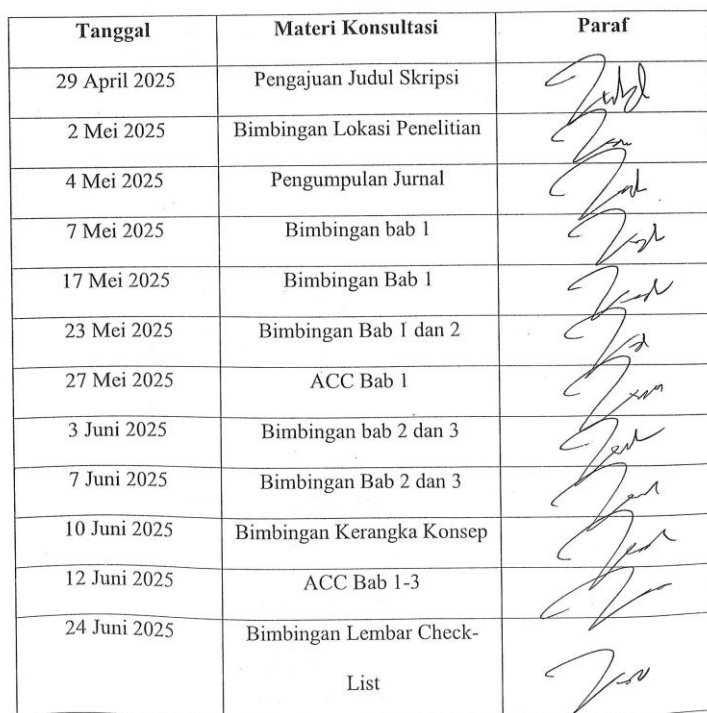 Tanggal Materi Konsultasi Paraf
29 April 2025 Pengajuan Judul Skripsi
2 Mei 2025 Bimbingan Lokasi Penelitian
4 Mei 2025 Pengumpulan Jurnal
7 Mei 2025 Bimbingan bab 1
17 Mei 2025 Bimbingan Bab 1
23 Mei 2025 Bimbingan Bab 1 dan 2
27 Mei 2025 ACC Bab 1
3 Juni 2025 Bimbingan bab 2 dan 3
7 Juni 2025 Bimbingan Bab 2 dan 3
10 Juni 2025 Bimbingan Kerangka Konsep
12 Juni 2025 ACC Bab 1-3
24 Juni 2025 Bimbingan Lembar Check-
List